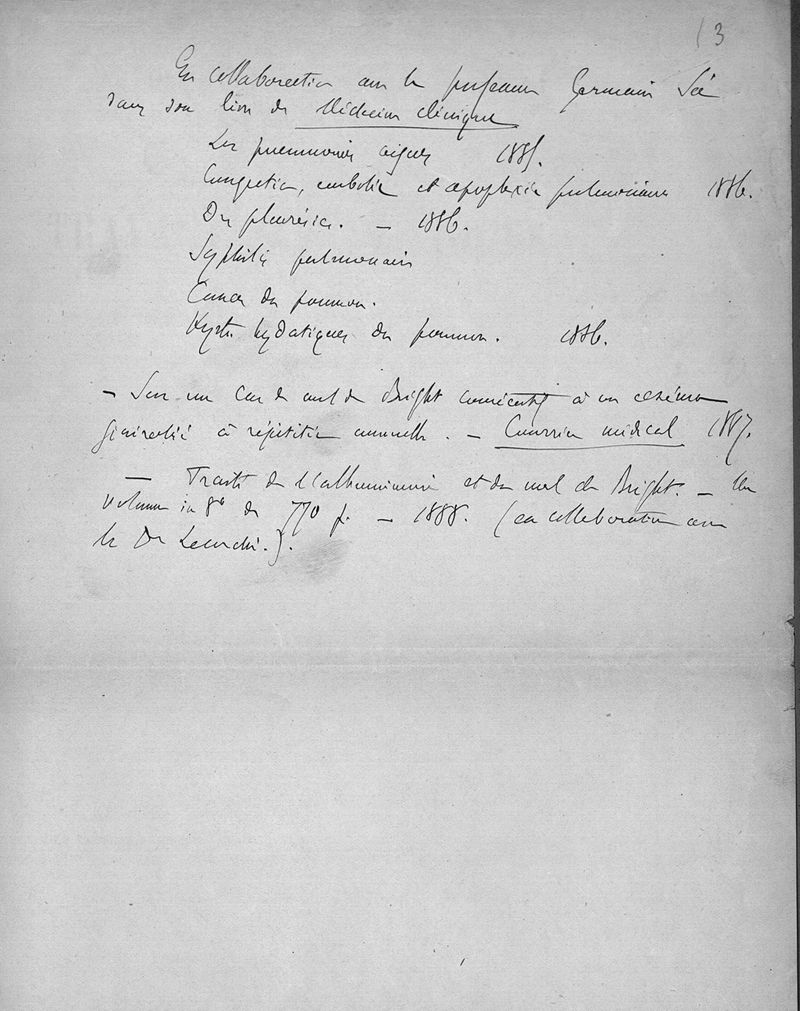 13
En collaboration avec le professeur Germain Sée
dans son livre de Médecine clinique
Les pneumonies aigues 1885.
Congestion, embolie et apoplexie pulmonaire 1886.
Des pleurésies. — 1886.
Syphilis pulmonaire
Cancer du poumon.
Kystes hydatiques du poumon. 1886.
— Sur un cas de mal de Bright consécutif à un eczéma
généralisé à répétition annuelle. — Courrier médical 1887.
— Traité de l'albuminurie et du mal de Bright. — Un
volume in 8º de 770 p. — 1888. (en collaboration avec
le Dr